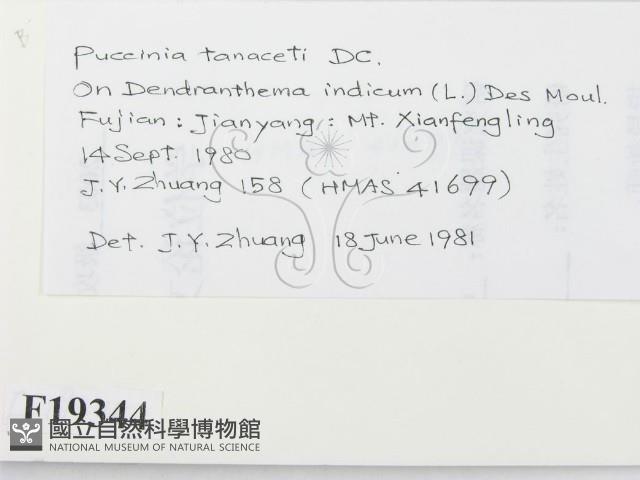 Puccinia tanaceti DC.
On Dendranthema indicum (L.) Des Moul.
Fujian : Jianyang : Mt. Xianfengling
14 Sept. 1980
J.Y. Zhuang 158 (HMAS 41699)
Det. J.Y. Zhuang 18 June 1981
F19344
國立自然科學博物館
NATIONAL MUSEUM OF NATURAL SCIENCE